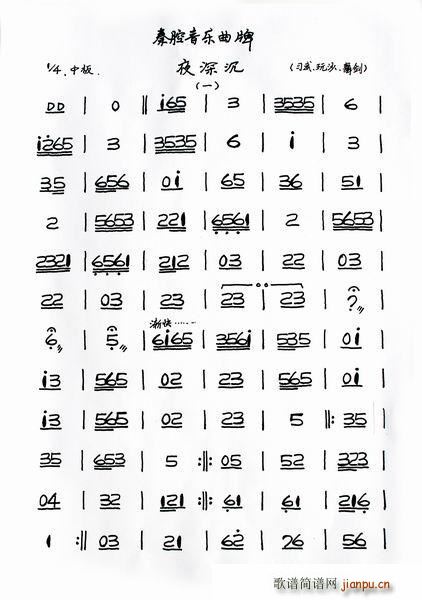 秦腔音乐曲牌
1/4.中板. 夜深沉 (习武.玩沙.舞剑)
(一)
DD | 0 ‖ i65 | 3 | 3535 | 6
i265 | 3 | 3535 | 6 | i | 3
35 | 656 | 0i | 65 | 36 | 51
2 | 5653 | 221 | 6561 | 2 | 5653
2321 | 6561 | 212 | 03 | 22 | 03
22 | 03 | 23 | 23 | 23 | 2
渐快……
6 | 5 | 6i65 | 356i | 535 | 0i
i3 | 565 | 02 | 23 | 565 | 0i
i3 | 565 | 02 | 23 | 5 ‖: 35
35 | 653 | 5 :‖: 05 | 52 | 323
04 | 32 | 121 :‖: 61 | 61 | 216
1 :‖ 03 | 21 | 62 | 26 | 56
歌谱简谱网
jianpu.cn